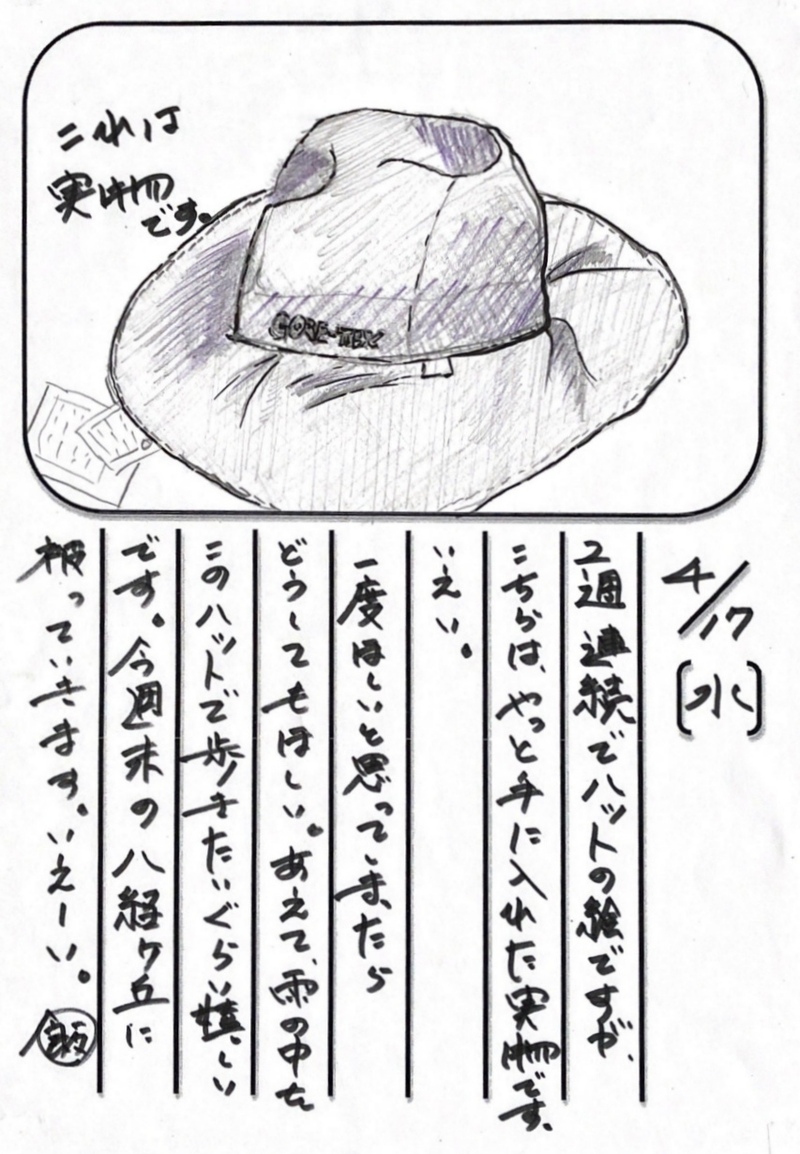 これは
実物
です。
GORE-TEX
4/17
[水]
2週連続でハットの絵ですが、
こちらは、やっと手に入れた実物です。
いえい。
一度ほしいと思ってしまったら
どうしてもほしい。あえて、雨の中を
このハットで歩きたいぐらい嬉しい
です。今週末の八経ヶ丘に
被っていきます。いえーい。
飯